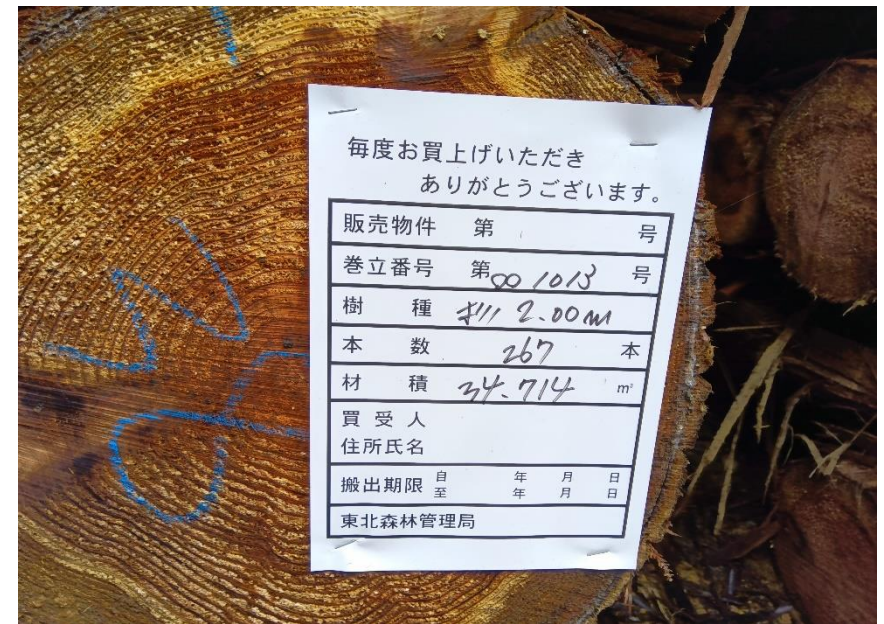 毎度お買上げいただき
ありがとうございます。
販売物件 第 号
巻立番号 第001013号
樹種 杉 2.00m
本数 267 本
材積 34.714 m³
買受人
住所氏名
搬出期限 自 年 月 日
至 年 月 日
東北森林管理局